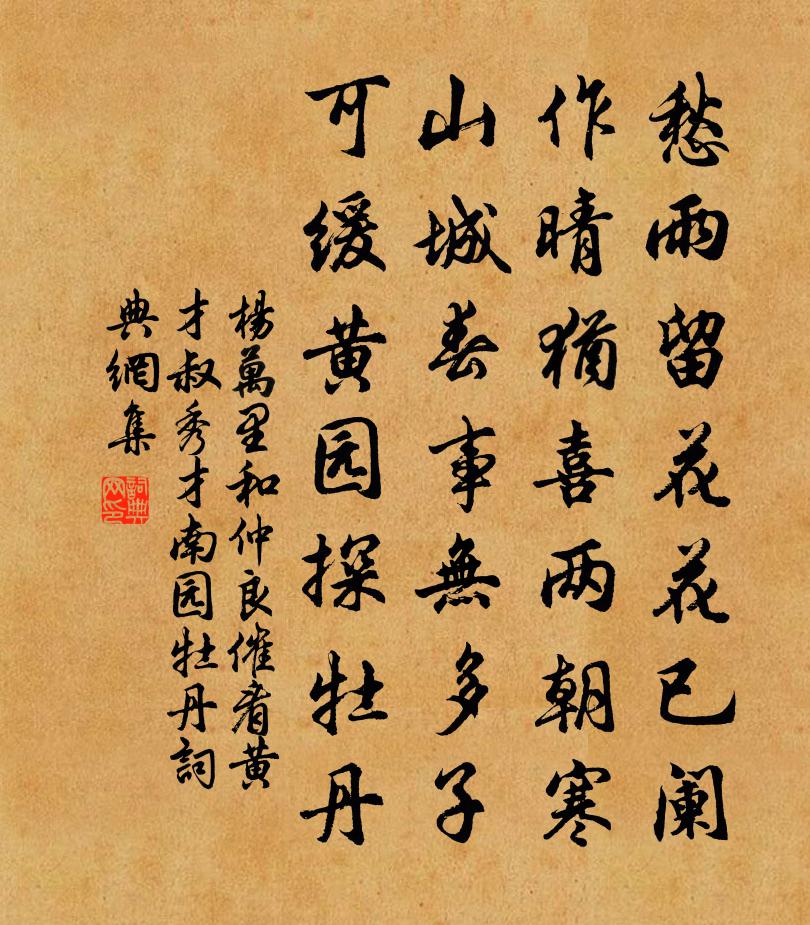 愁雨留花花已阑
作晴猶喜两朝寒
山城春事無多子
可缓黄园探牡丹
楊萬里和仲良催看黄
才叔秀才南园牡丹詞
典網集
詞典网印